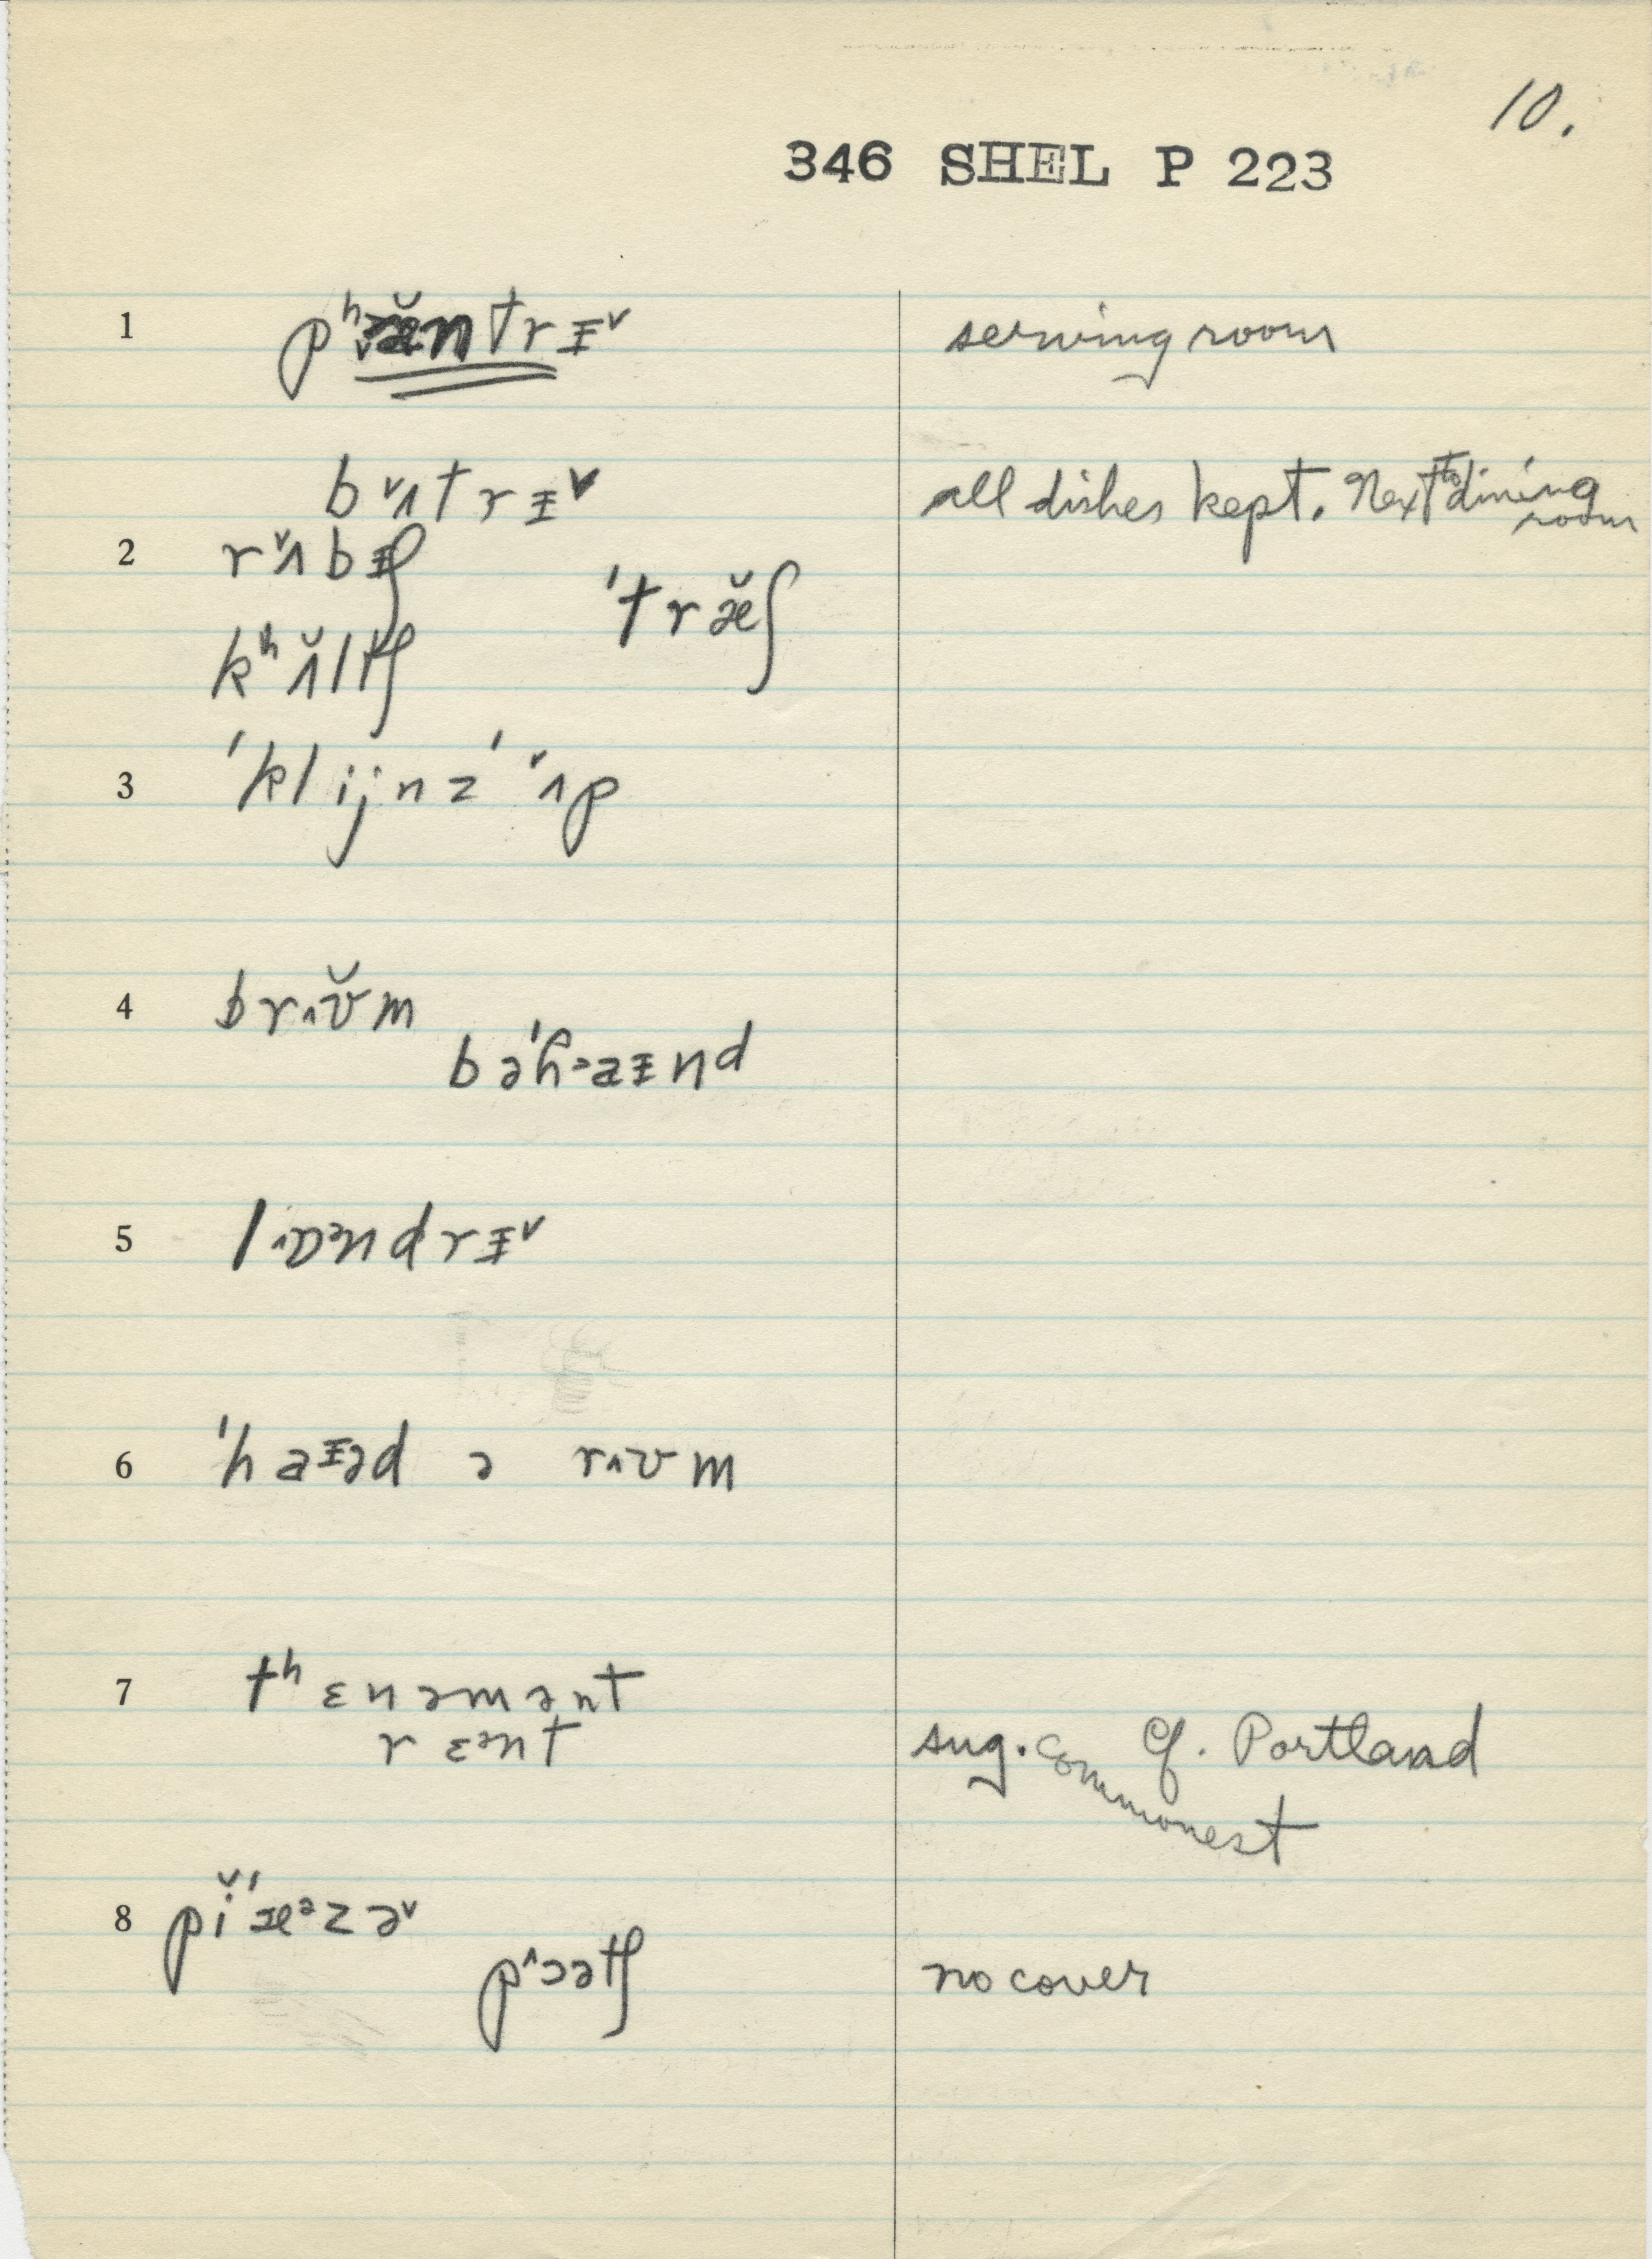 10.
346 SHEL P 223
1 pʰæ̆ntrɪ˅ serving room
bʌ˅trɪ˅ all dishes kept. Next to dining room
2 rʌ˅bɪʃ
'træ̆ʃ
kʰʌ̆ltʃ
3 'klijnz' ʌ˅p
4 brʌʊ̆m
bə'hɑɪnd
5 lɒəndrɪ˅
6 'haɪəd ə rʌʊm
7 tʰɛnəmənt
rɛənt sug. commonest Cf. Portland
8 pĭ'æᵊzə˅
pɔətʃ no cover